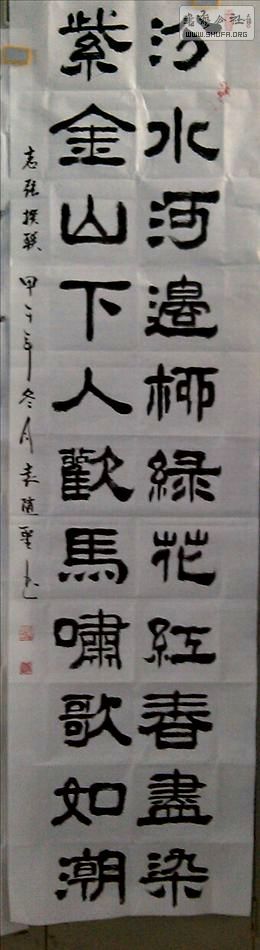 水河邊柳綠花紅春盡染
紫金山下人歡馬嘯歌如潮
志强撰联 甲午年冬月
書法公社
WWW.SHUFA.ORG